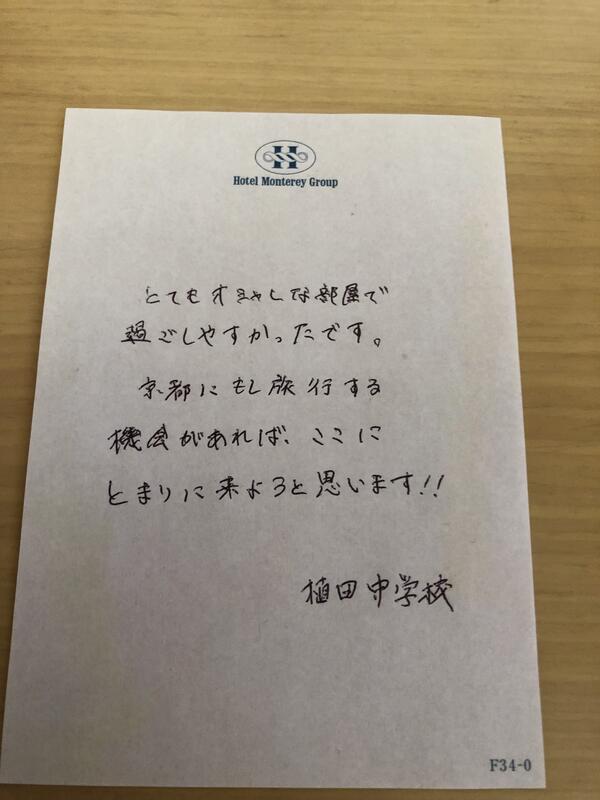 H
Hotel Monterey Group
とてもオシャレな部屋で
過ごしやすかったです。
京都にもし旅行する
機会があれば、ここに
とまりに来ようと思います!!
植田中学校
F34-0